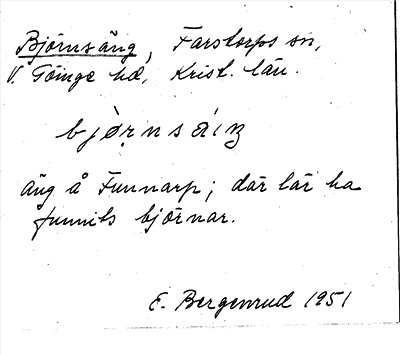 Björnsäng, Farstorps sn,
V. Göinge hd, Krist. län.
bjö̀rnsáıŋ
äng å Funnarp; där lär ha
funnits björnar.
E. Bergenrud 1951